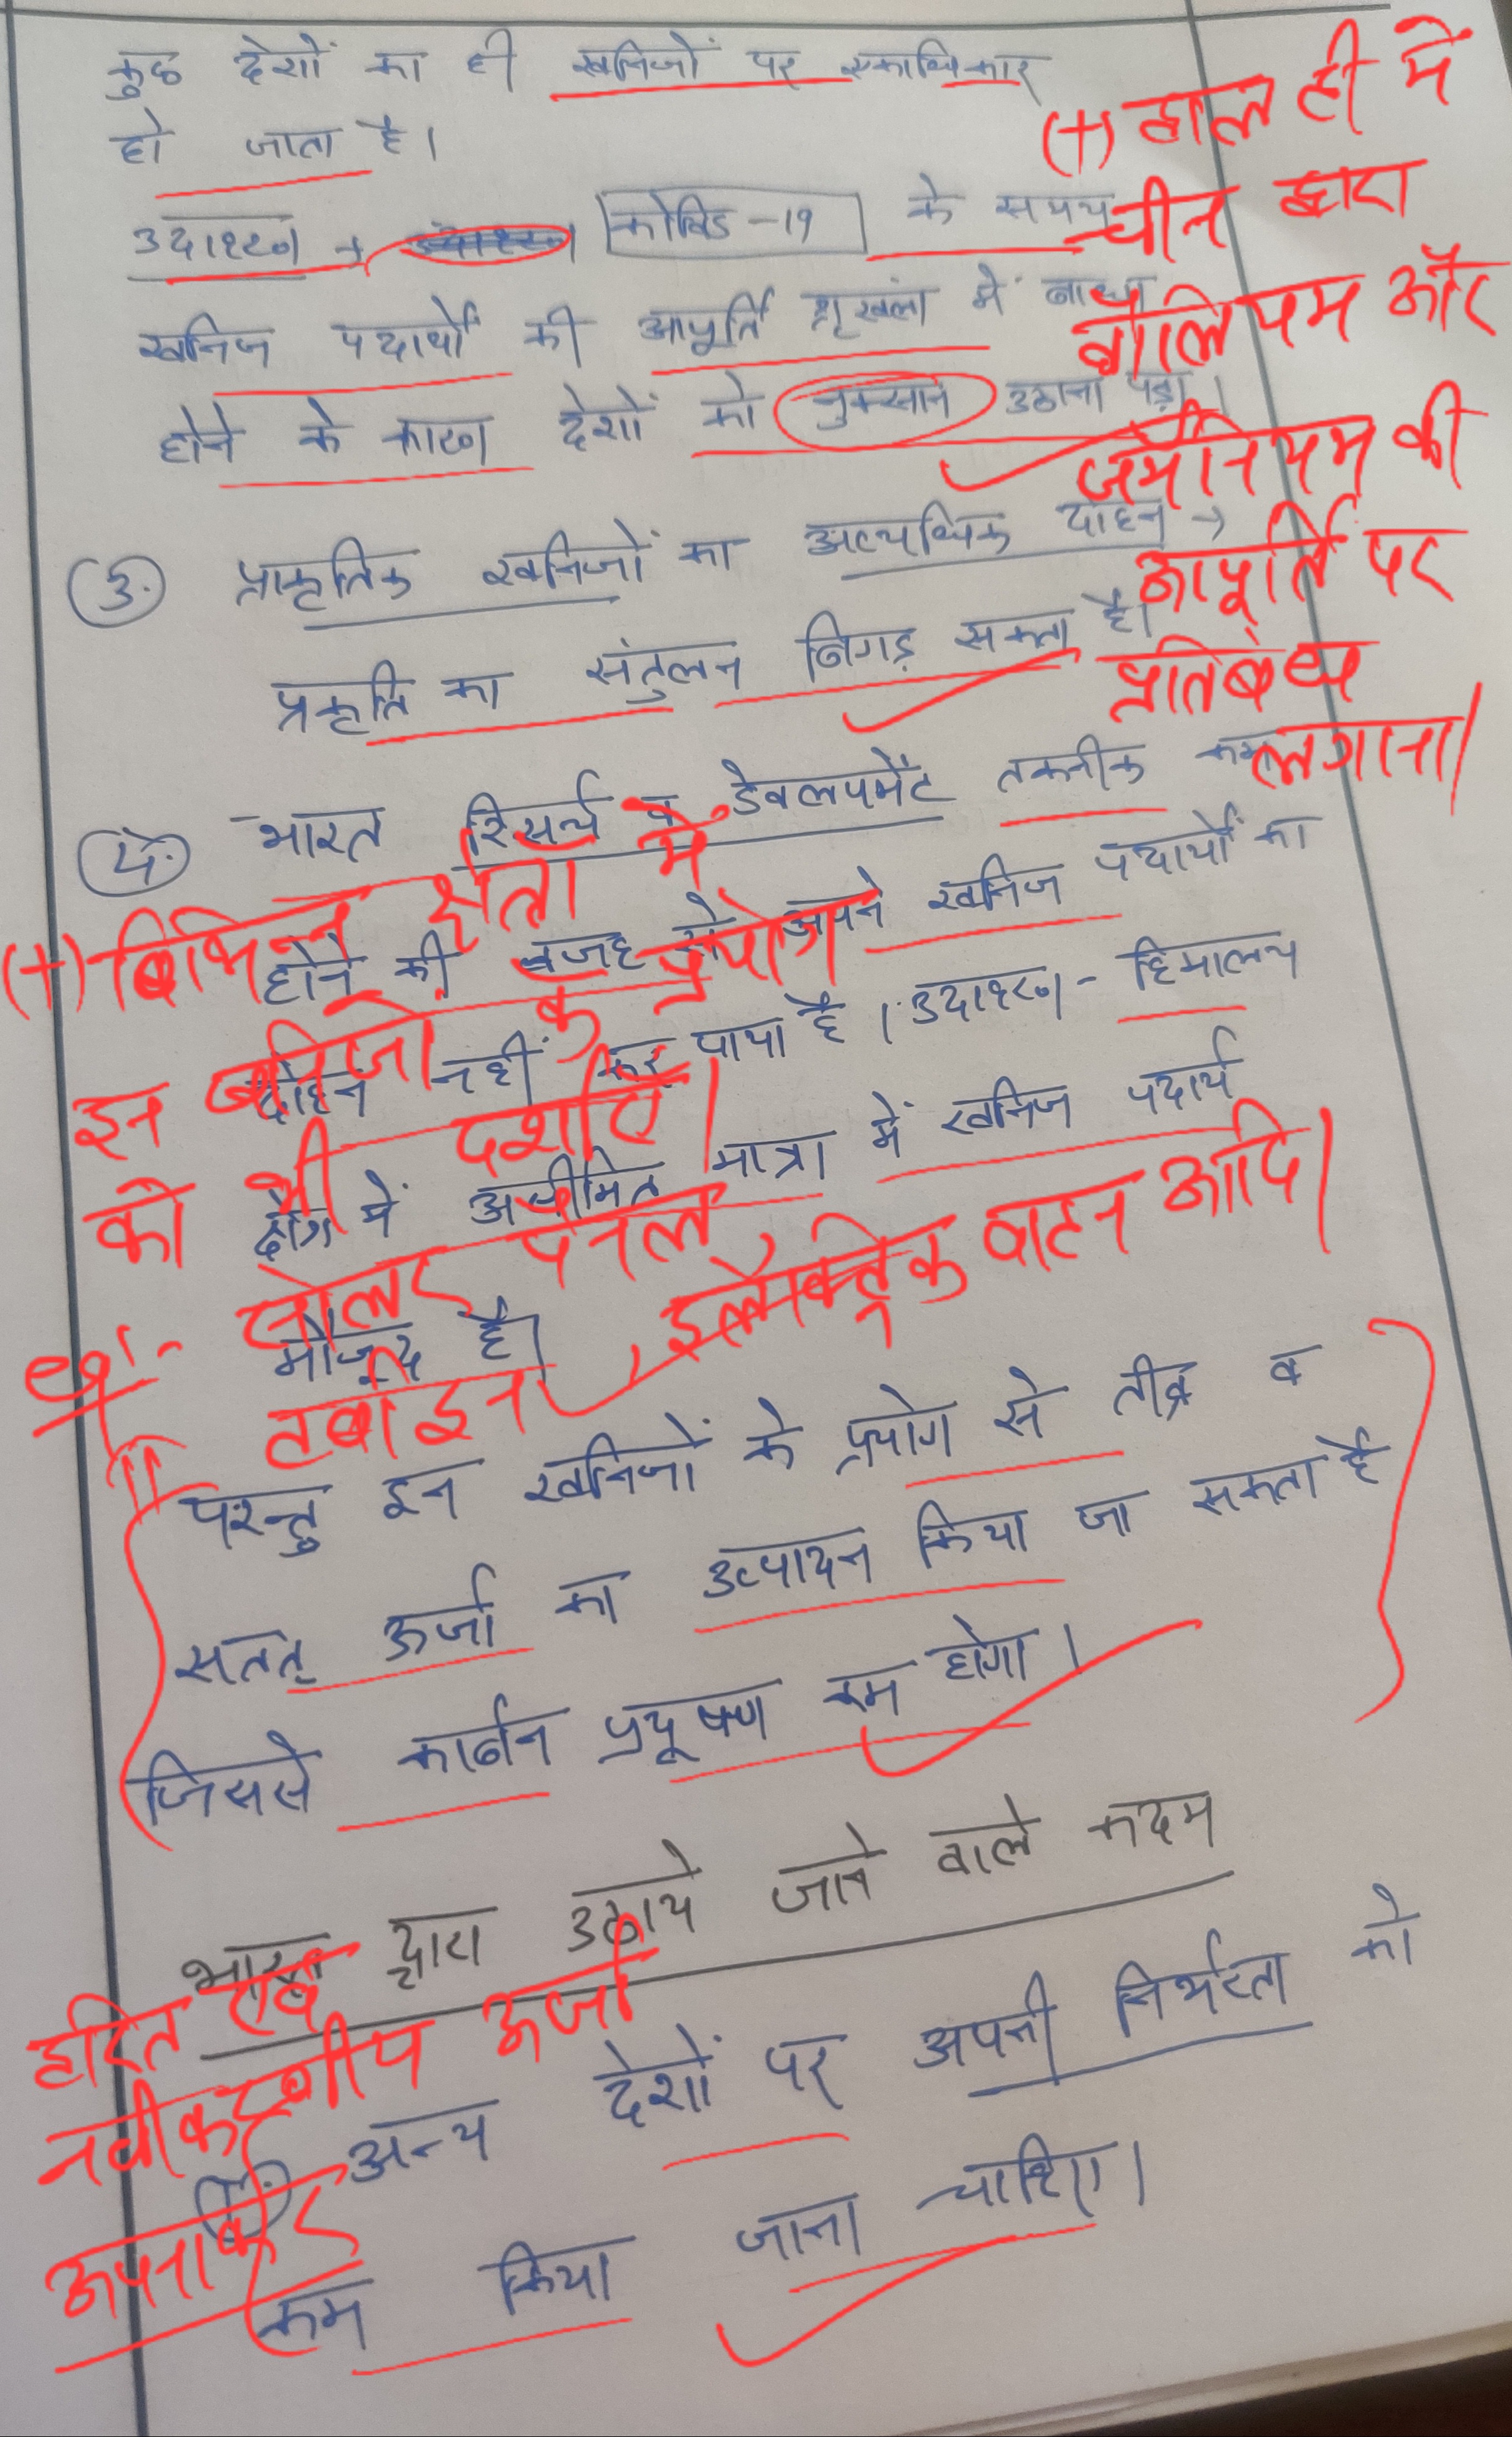 कुछ देशों का ही खनिजों पर एकाधिकार
हो जाता है।
उदाहरण → कोविड-19 के समय
खनिज पदार्थों की आपूर्ति श्रृखंला में बाधा
होने के कारण देशों को नुकसान उठाना पड़ा।
(+) हाल ही में
चीन द्वारा
गैलियम और
जर्मेनियम की
आपूर्ति पर
प्रतिबंध
लगाना।
3. प्राकृतिक खनिजों का अत्यधिक दोहन →
प्रकृति का संतुलन बिगड़ सकता है।
4. भारत रिसर्च व डेवलपमेंट तकनीक कम
होने की वजह से अपने खनिज पदार्थों का
दोहन नहीं कर पाया है। उदाहरण - हिमालय
क्षेत्र में असीमित मात्रा में खनिज पदार्थ
मौजूद है।
(+) विभिन्न क्षेत्रों में
इन खनिजों के प्रयोग
को भी दर्शाएँ।
सोलर पैनल,
टर्बाइन, इलेक्ट्रिक वाहन आदि।
परन्तु इन खनिजों के प्रयोग से तीव्र व
सतत् ऊर्जा का उत्पादन किया जा सकता है
जिससे कार्बन प्रदूषण कम होगा।
भारत द्वारा उठाये जाने वाले कदम
अन्य देशों पर अपनी निर्भरता को
कम किया जाना चाहिए।
हरित एवं
नवीकरणीय ऊर्जा
अपनाकर